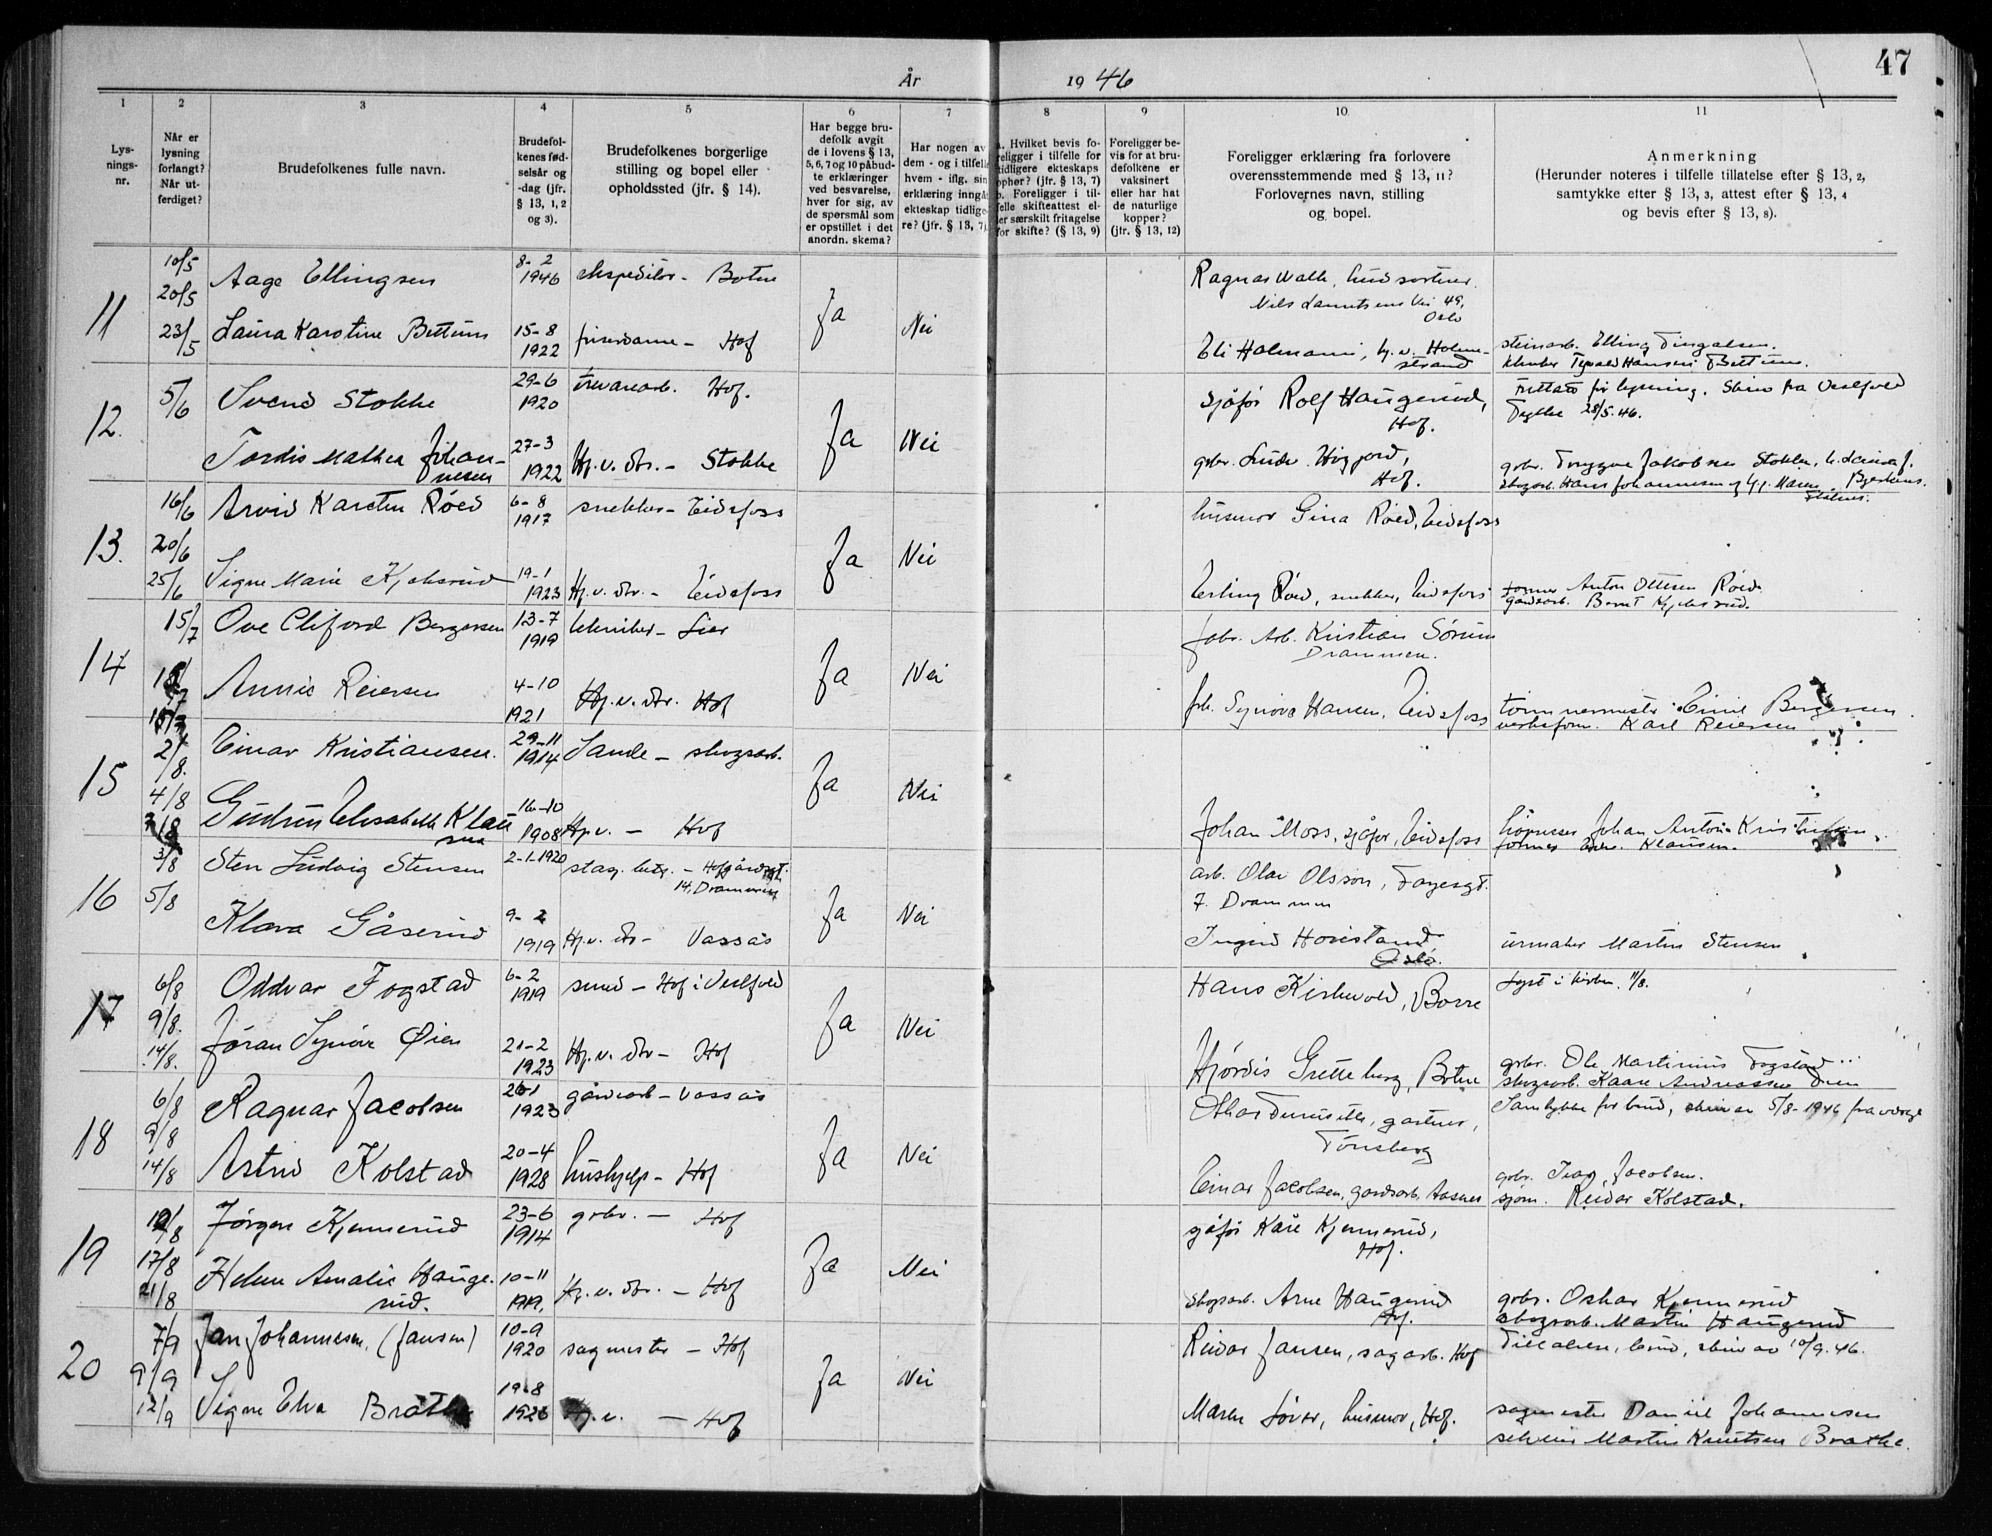 47
År 1946
1 2 3 4 5 6 7 8 9 10 11
Lys-
nings-
nr.
Når er
lysning
forlangt?
Når ut-
ferdiget?
Brudefolkenes fulle navn.
Brudefol-
kenes fød-
selsår og
-dag (jfr.
§ 13, 1, 2
og 3).
Brudefolkenes borgerlige
stilling og bopel eller
opholdssted (jfr. § 14).
Har begge bru-
defolk avgit
de i lovens § 13,
5, 6, 7 og 10 påbud-
te erklæringer
ved besvarelse,
hver for sig, av
de spørsmål som
er opstillet i det
anordn. skema?
Har nogen av
dem - og i tilfelle
hvem - iflg. sin
erklæring inngå
ekteskap tidlige
re? (jfr. § 13, 7).
a. Hvilket bevis fo-
religger i tilfelle for
tidligere ekteskaps
ophør? (jfr. § 13, 7)
b. Foreligger i til-
felle skifteattest el-
ler særskilt fritagelse
for skifte? (§ 13, 9)
Foreligger be-
vis for at bru-
defolkene er
vaksinert
eller har hat
de naturlige
kopper?
(jfr. § 13, 12)
Foreligger erklæring fra forlovere
overensstemmende med § 13, 11?
Forlovernes navn, stilling
og bopel.
Anmerkning
(Herunder noteres i tilfelle tillatelse efter § 13, 2,
samtykke efter § 13, 3, attest efter § 13, 4
og bevis efter § 13, 8).
11
10/5
20/5
23/5
Aage Ellingsen 8-2 1946 ekspeditør - Botne
Laura Karstine Bettum 15-8 1922 frisørdame - Hof
Ja Nei
Ragnar Walle,
Nils Lauritsens Vei 49,
Oslo
Eli Holmann, Hj. v. Holme-
strand
steinarb. Elling Fingalsen.
12.
5/6
Svend Stokke 29-6 1920 trevarearb. Hof.
Tordis Mathea Johan-
nesen 27-3 1922 Hj. v. dtr. - Stokke
Ja Nei
sjåfør Rolf Haugerud,
Hof.
gbr.
Hof.
28/5. 46.
gbr. Tryggve Jakobsen Stokke,
skogarb. Hans Johannesen og Hj. Maren
13.
16/6
20/6
25/6
Arvid Karsten Røed 6-8 1917 snekker - Eidsfoss
Signe Marie Kjeksrud 19-1 1923 Hj. v. dtr. - Eidsfoss
Ja Nei
husmor Gina Røed, Eidsfoss
Erling Røed, snekker, Eidsfoss
former Anton Ottesen Røed.
gårdsarb. Bernt Kjeksrud.
14
15/7
Ove Cliford Bergersen 13-7 1919 tekniker - Lier
Annie Reiersen 4-10 1921 Hj. v. dtr. Hof
Ja Nei
fabr. Arb. Kristian Sørum
Drammen.
frk. Synøve Hansen, Eidsfoss
tømmermester Emil Bergersen.
verksform. Karl Reiersen
15
2/8.
4/8
Einar Kristiansen. 29-11 1914 Sande - skogsarb.
Gudrun Elisabeth Klau
sen 16-10 1908 Hj. v. - Hof
Ja Nei
Johan Moss, sjåfør, Eidsfoss
Johan Anton Kristiansen.
former Klausen.
16
3/8
5/8
Sten Ludvig Stensen 2-1-1920
14, Drammen
Klara Gåserud 9-2 1919 Hj. v. dtr - Vassås
Ja Nei
arb. Olav Olsson,
7. Drammen
Ingrid
Oslo.
urmaker Martin Stensen
17
6/8
9/8.
14/8.
Oddvar Fogstad 6-2 1919 smed - Hof i Vestfold
Jøran Synøve Øien 21-2 1923 Hj. v. dtr - Hof
Ja Nei
Hans Kirkevold, Borre
Hjørdis Gretteberg, Botne
Lyst i kirken. 11/8.
gbr. Ole Martinius Fogstad
skogsarb. Kaare Andreassen Øien
18
6/8
9/8
14/8
Ragnar Jacobsen 1923 gårdsarb - Vassås
Astrid Kolstad 20-4 1928 hushjelp - Hof
Ja Nei
gartner,
Tønsberg
Einar Jacobsen, gardsarb. Aasnes
Samtykke for brud, skriv av 5/8-1946 fra verge
gbr. Ivar Jacobsen.
sjøm. Reidar Kolstad.
19
17/8
21/8
Jørgen Kjennerud 23-6 1914 gbr. - Hof
Helene Amalie Hauge-
rud. 10-11 1919, Hj. v. dtr. - Hof
Ja Nei
sjåfør Kåre Kjennerud,
Hof.
skogsarb. Arne Haugerud
Hof.
gbr. Oskar Kjennerud
skogsarb. Martin Haugerud
20
7/9
9/9
12/9
Jan Johannesen, (Jansen) 10-9 1920 sagmester - Hof
Signe Elva Bråthe 19-8 1926 Hj. v. - Hof
Ja Nei
Reidar Jansen, sagarb. Hof
Maren husmor, Hof.
Tillatelse, brud, skriv av 10/9. 46.
sagmester Daniel Johannesen
Martin Knutsen Bråthe.